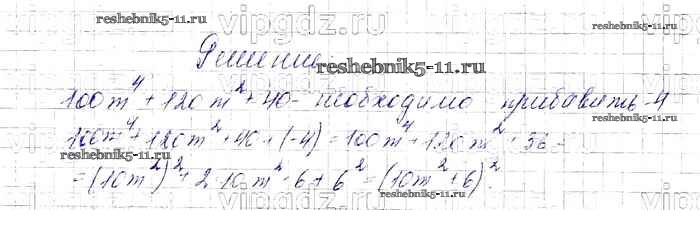 vipgdz.ru
reshebnik5-11.ru
reshebnik5-11.ru
Решение
reshebnik5-11.ru
100m⁴ + 120m² + 40 - необходимо прибавить -4
100m⁴ + 120m² + 40 + (-4) = 100m⁴ + 120m² + 36 =
reshebnik5-11.ru
reshebnik5-11.ru
= (10m²)² + 2·10m²·6 + 6² = (10m² + 6)².
vipgdz.ru